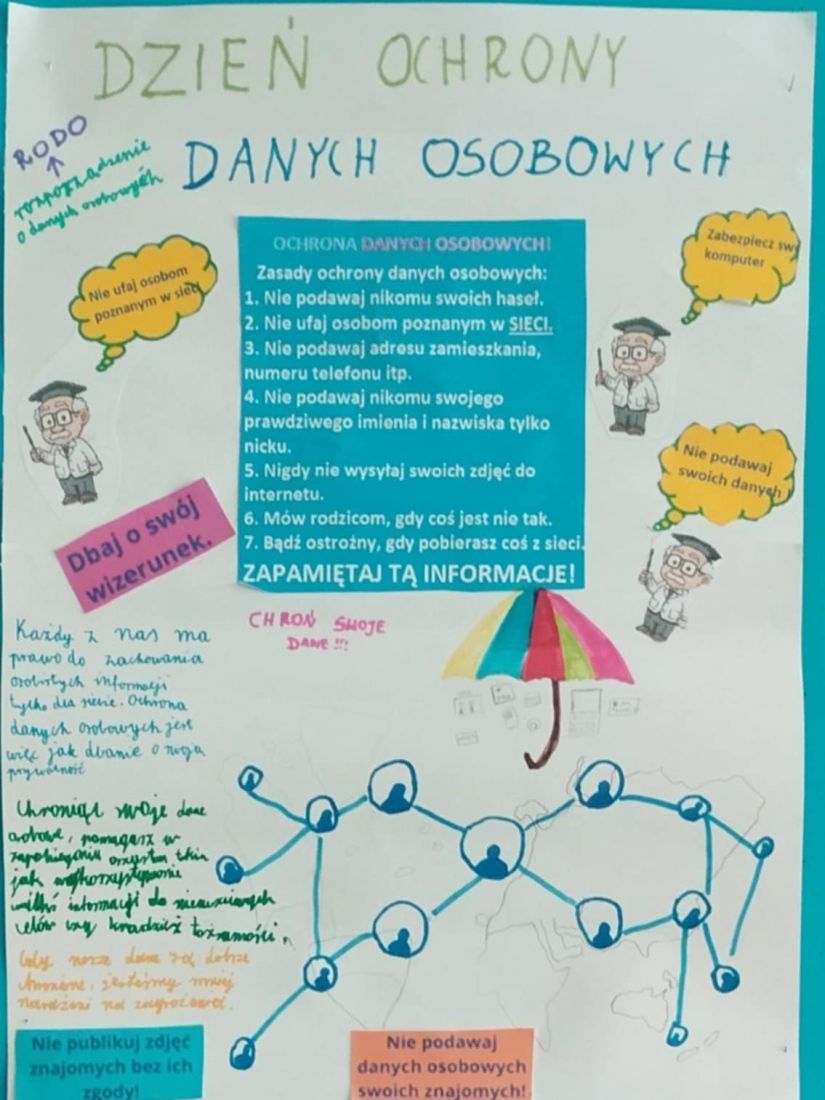 DZIEŃ OCHRONY
DANYCH OSOBOWYCH
RODO
rozporządzenie
o danych osobowych
Nie ufaj osobom
poznanym w sieci
OCHRONA DANYCH OSOBOWYCH!
Zasady ochrony danych osobowych:
1. Nie podawaj nikomu swoich haseł.
2. Nie ufaj osobom poznanym w SIECI.
3. Nie podawaj adresu zamieszkania,
numeru telefonu itp.
4. Nie podawaj nikomu swojego
prawdziwego imienia i nazwiska tylko
nicku.
5. Nigdy nie wysyłaj swoich zdjęć do
internetu.
6. Mów rodzicom, gdy coś jest nie tak.
7. Bądź ostrożny, gdy pobierasz coś z sieci.
ZAPAMIĘTAJ TĄ INFORMACJE!
Zabezpiecz swój
komputer
Nie podawaj
swoich danych
Dbaj o swój
wizerunek.
CHROŃ SWOJE
DANE !!!
Każdy z nas ma
prawo do zachowania
osobistych informacji
tylko dla siebie. Ochrona
danych osobowych jest
więc jak dbanie o swoją
prywatność
Chroniąc swoje dane
osobowe, pomagasz w
zapobieganiu oszustwom takim
jak wykorzystywanie
informacji do nieuczciwych
celów czy kradzież tożsamości.
Gdy nasze dane są dobrze
chronione, jesteśmy mniej
narażeni na zagrożenia.
Nie publikuj zdjęć
znajomych bez ich
zgody!
Nie podawaj
danych osobowych
swoich znajomych!